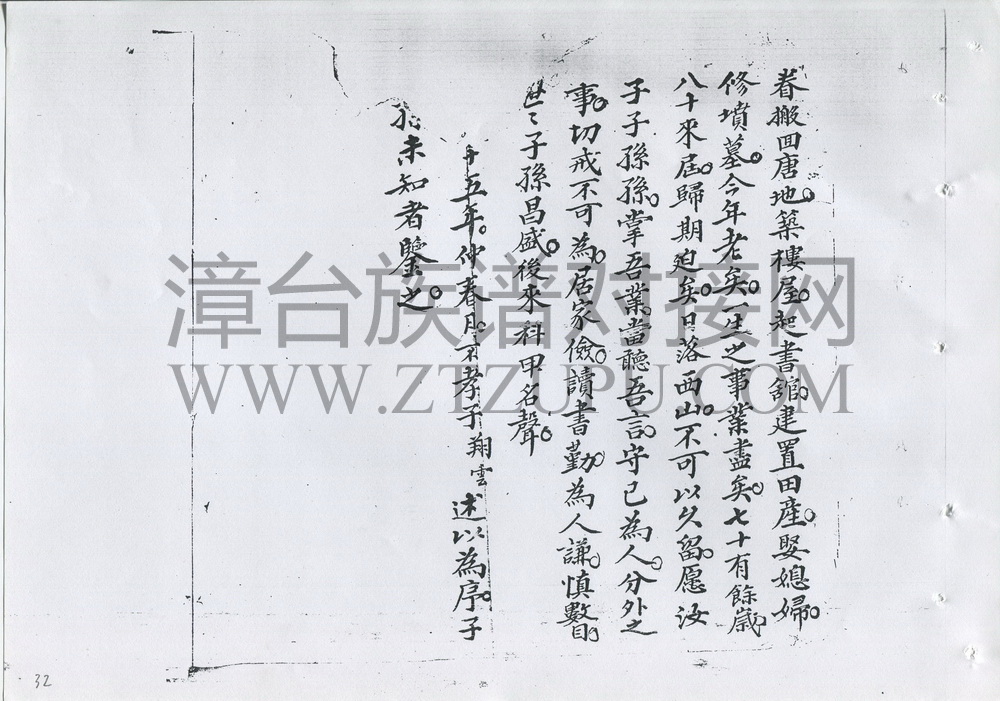 眷搬回唐地。築樓屋。起書舘。建置田産。娶媳婦。
修墳墓。今年老矣。一生之事業盡矣。七十有餘歲。
八十來屆。歸期迫矣。日落西山。不可以久留。愿汝
子子孫孫。掌吾業。當聽吾言。守己為人。分外之
事。切戒不可為。居家儉。讀書勤。為人謙。慎數目。
世〻子孫昌盛。後來科甲名聲。
五年。仲春月。不孝子翔雲 述以為序。子
孫未知者鑒之。
漳台族谱对接网
WWW.ZTZUPU.COM
32